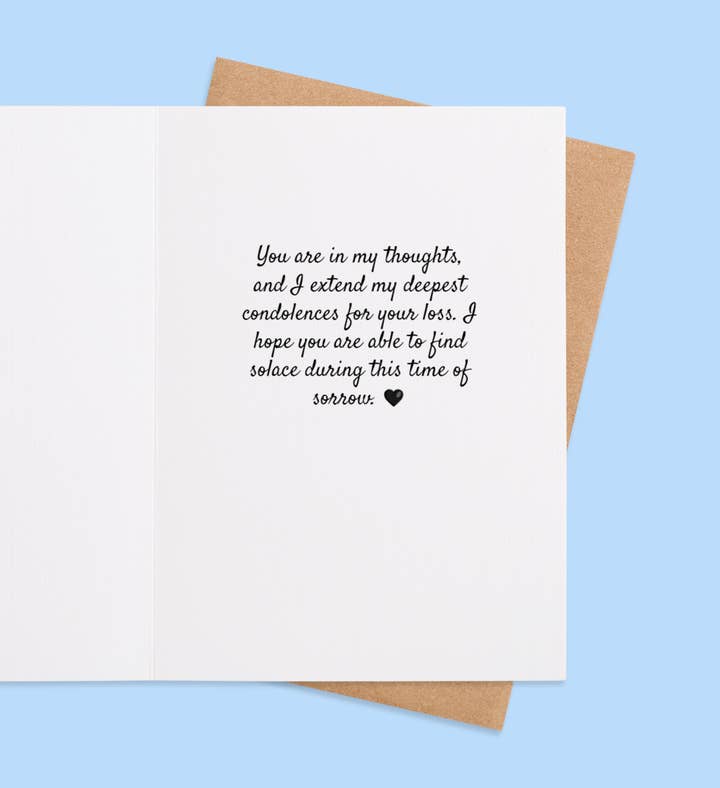 You are in my thoughts,
and I extend my deepest
condolences for your loss. I
hope you are able to find
solace during this time of
sorrow. 🖤